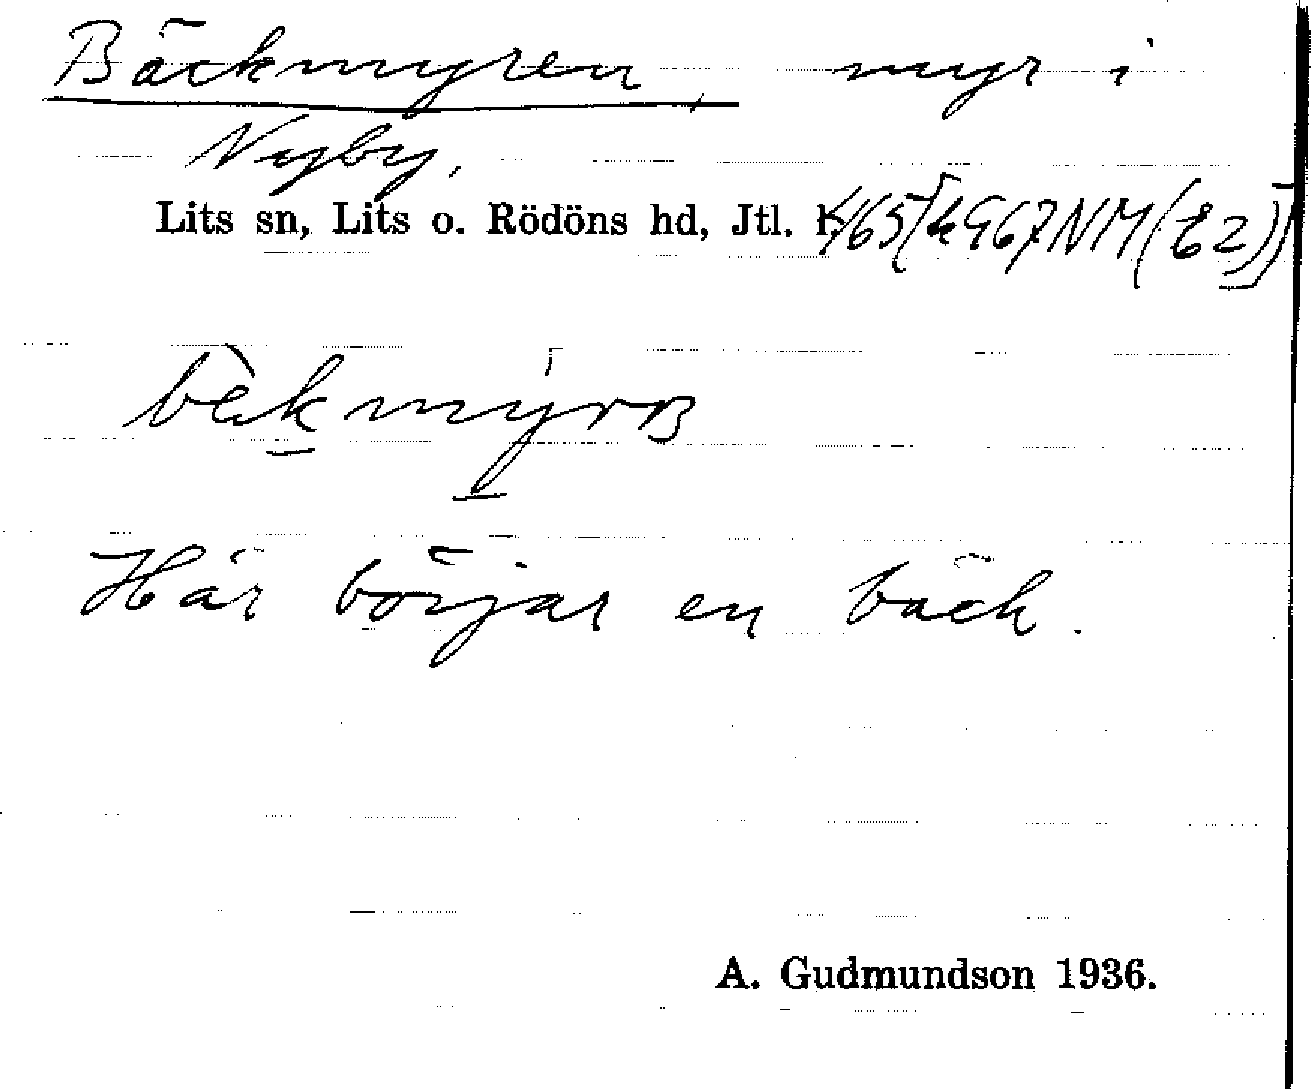 Bäckmyren, myr i
Nyby,
Lits sn, Lits o. Rödöns hd, Jtl. l.
Här börjar en bäck.
A. Gudmundson 1936.